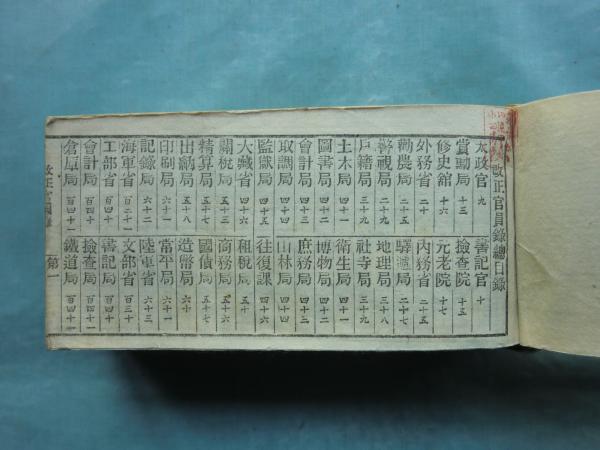 改正官員錄總目錄
太政官 九 書記官 十
賞勳局 十三 撿査院 十五
修史館 十六 元老院 十七
外務省 二十 內務省 二十五
勸農局 二十五 驛遞局 二十七
警視局 地理局 三十八
戶籍局 三十九 社寺局 三十九
土木局 四十 衛生局 四十一
圖書局 四十二 博物局 四十二
會計局 四十三 庶務局 四十三
取調局 四十四 山林局 四十四
監獄局 四十五 往復課 四十六
大藏省 四十六 租稅局 五十
關稅局 五十三 商務局 五十六
精算局 五十七 國債局 五十七
出納局 五十八 造幣局 六十
印刷局 六十一 常平局 六十一
記錄局 六十二 陸軍省 六十三
海軍省 百二十一 文部省 百三十
工部省 百四十 書記局 百四十
會計局 百四十 撿查局 百四十一
倉庫局 百四十一 鐵道局 百四十一
改正官員錄 第一